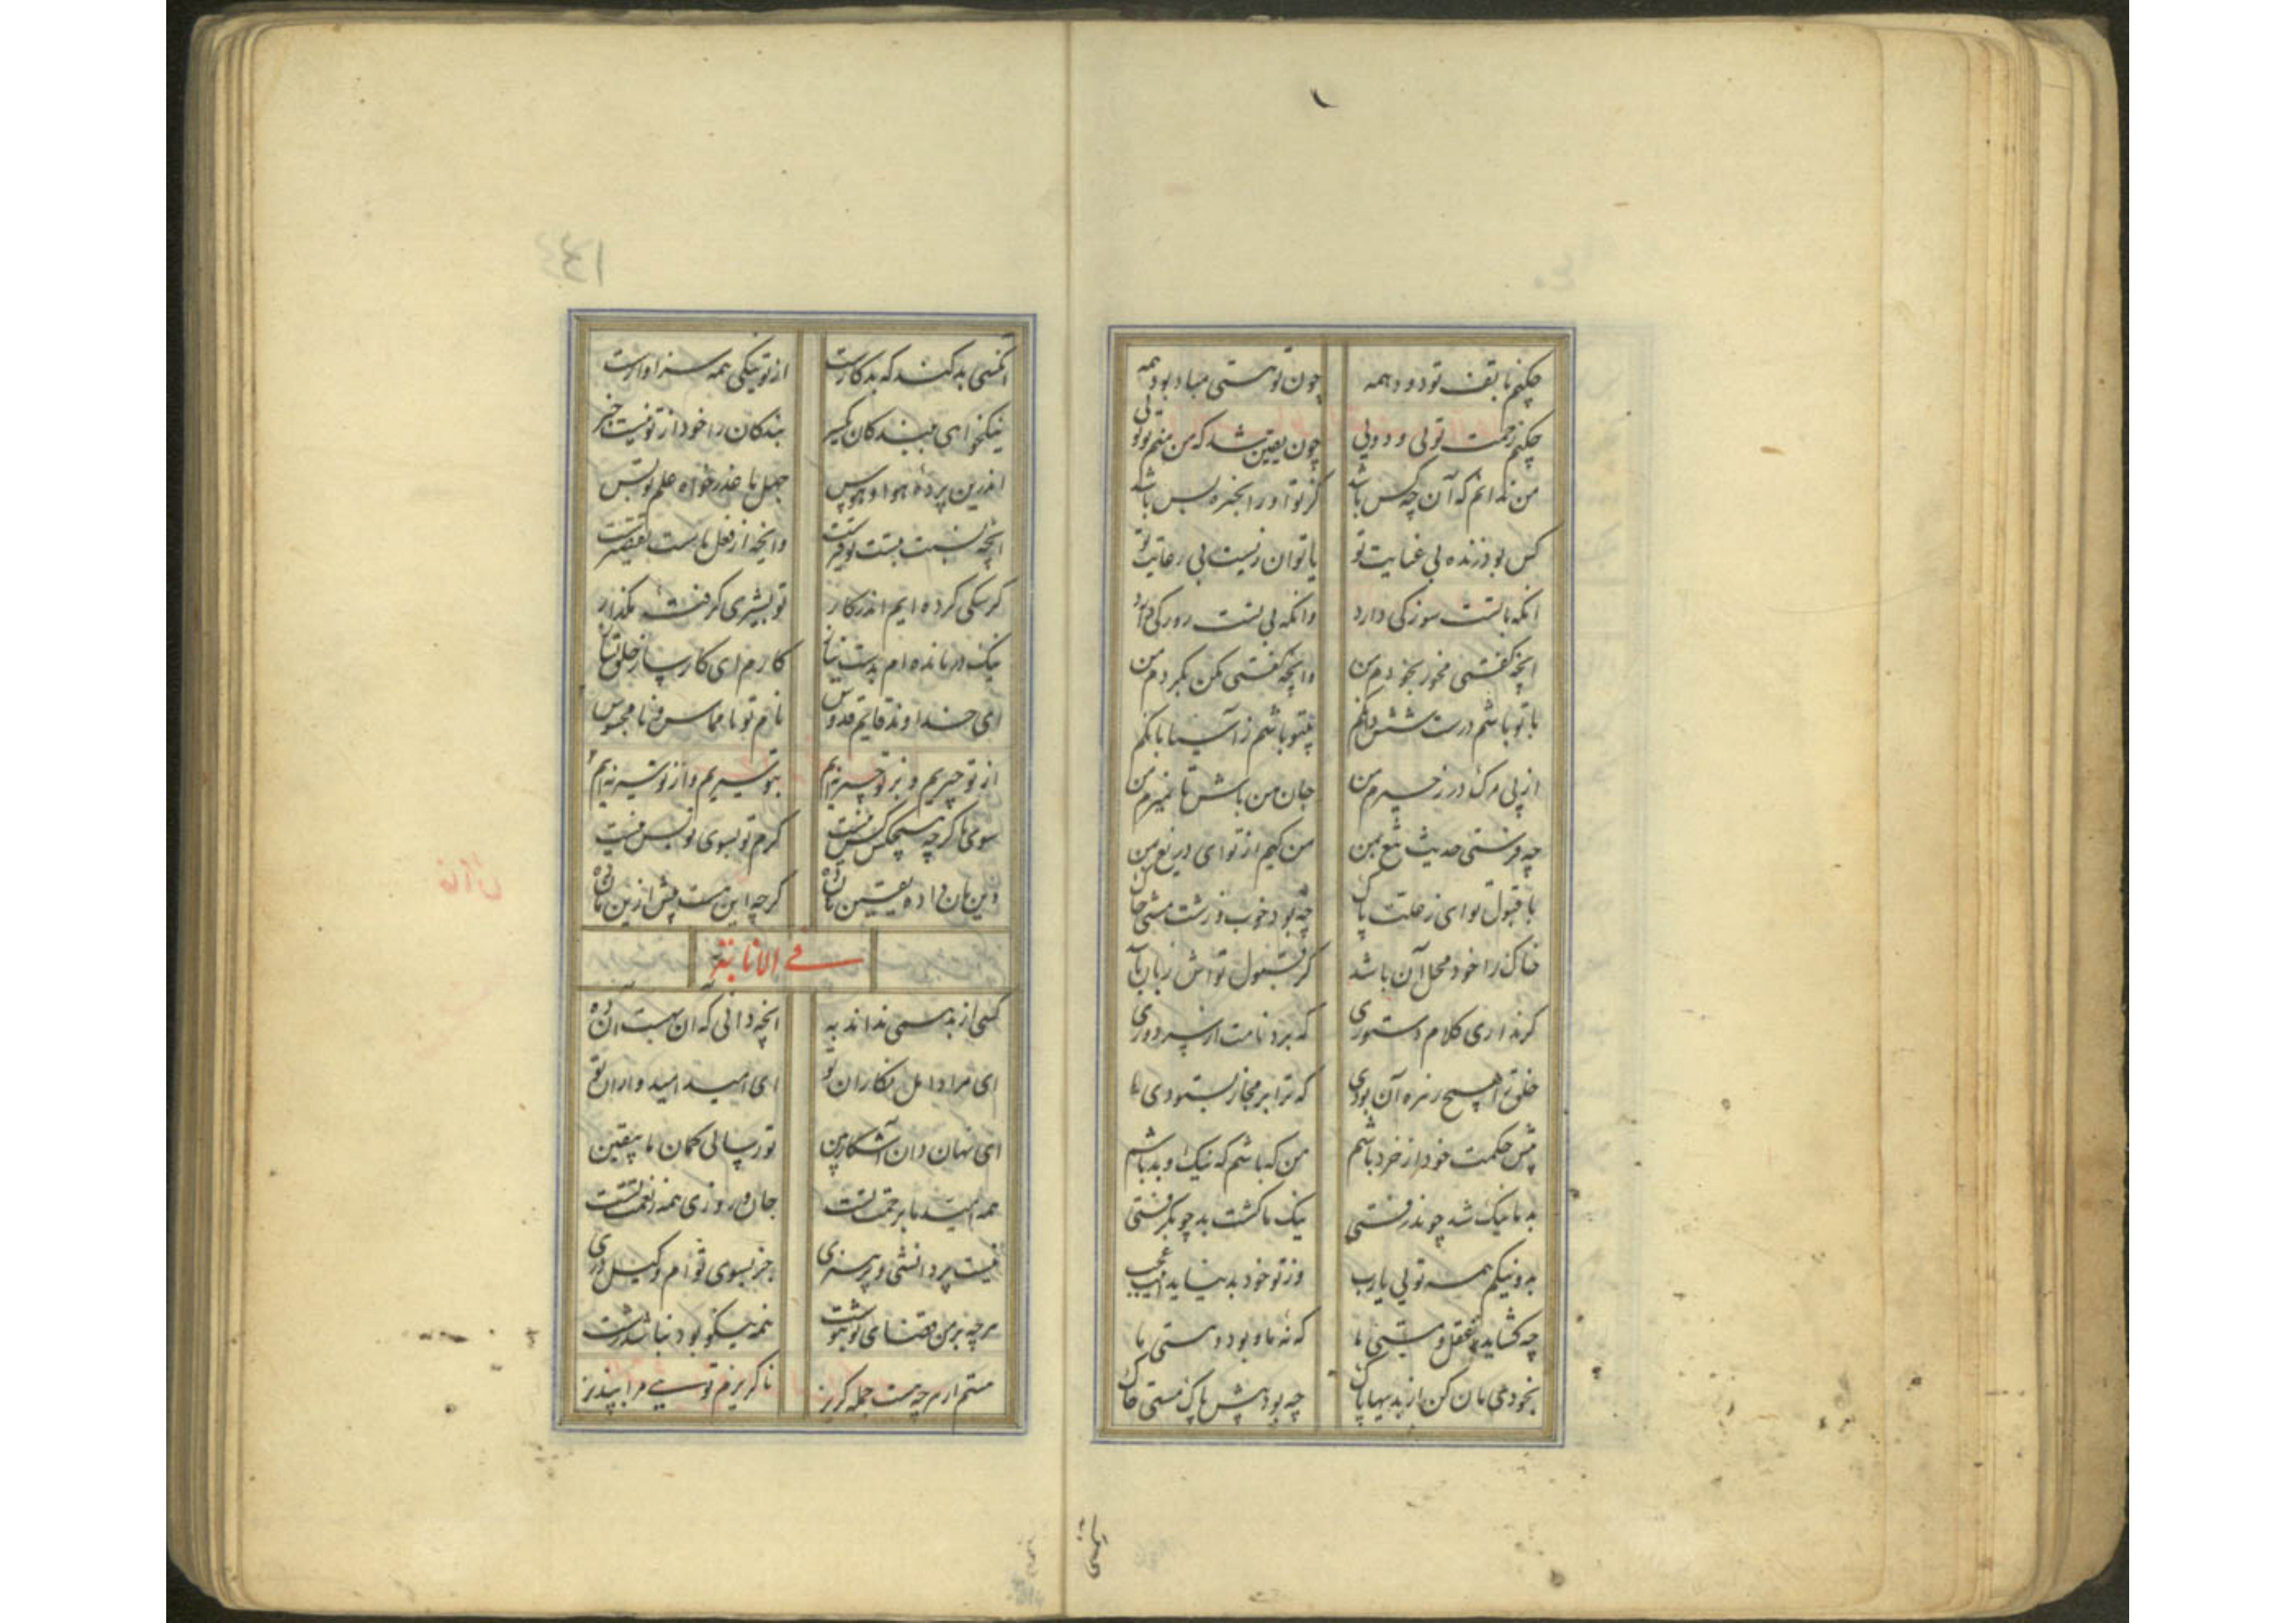 چکنم با تف تو دود همه چون تو هستی مباد بود همه
چکنم زحمت تویی و دویی چون یقین شد که من منم تو تویی
من ندانم که آن چه کس باشد کز تو او را بخیره بس باشد
کس بود زنده بی عنایت تو یا توان زیست بی رعایت تو
انکه با تست سوزکی دارد وانکه بی تست روزکی دارد
انچه گفتی مخور بخوردم من وانچه گفتی مکن بکردم من
با تو باشم درست شش دانگم بیتو باشم ز آسیا بانگم
از پی مرک در زحیرم من جان من باش تا نمیرم من
چه فرستی حدیث تیغ بمن من کیم از تو ای دریغ بمن
با قبول تو ای ز علت پاک چه بود خوب و زشت مشتی خاک
خاک را خود محل آن باشد کز قبول تواش زبان باشد
گر نداری کلام دستوری که برد نامت از سر دوری
خلق را هیچ زهره آن بودی که ترا بر مجاز بستودی
پیش حکمت خود از خرد باشم من که باشم که نیک و بد باشم
بد ما نیک شد چو پذرفتی نیک ما گشت بد چو بگرفتی
بد و نیکم همه تویی یارب وز تو خود بد نیاید اینت عجب
چه گشاید ز عقل و مستی ما که نه ما و بود و هستی ما
بخودی مان کن از بدیها پاک چه بود پیش پاک مشتی خاک
انکسی بد کند که بدکارست از تو نیکی همه سزاوارست
نیکخواهی ببندکان یکسر بندکان را خود از تو نیست خبر
اندرین پرده هوا و هوس جهل ما عذر خواه علم تو بس
انچه نسبت بتست توفیرست وانچه از فعل ماست تقصیرست
گر سگی کرده ایم اندر کار تو بشیری گرفته مگذار
نیک درمانده ام بدست نیاز کارم ای کارساز خلق بساز
ای خداوند قایم قدوس نام تو نا مماس و نا محسوس
از تو چیزیم و بر تو چیز نه ایم بتو شیریم و از تو شیر نه ایم
سوی ما گرچه هیچکس کس نیست کرم تو بسوی تو بس نیست
دین مان داده یقین مان ده گرچه این هست بیش ازین مان ده
فی الانابته
کسی از بد همی نداند به انچه دانی که آن بهست آن ده
ای مراد امل نگاران تو ای امید امیدواران تو
ای نهان دان آشکارا بین تو رسانی گمان ما بیقین
همه امید ما برحمت تست جان و روزی همه ز نعمت تست
نیست پر دانشی و پر هنری جز بسوی تو ام وکیل دری
هرچه بر من قضای تو بنوشت همه نیکو بود نباشد زشت
هستم از هرچه هست جمله گریز ناگزیرم تویی مرا بپذیر